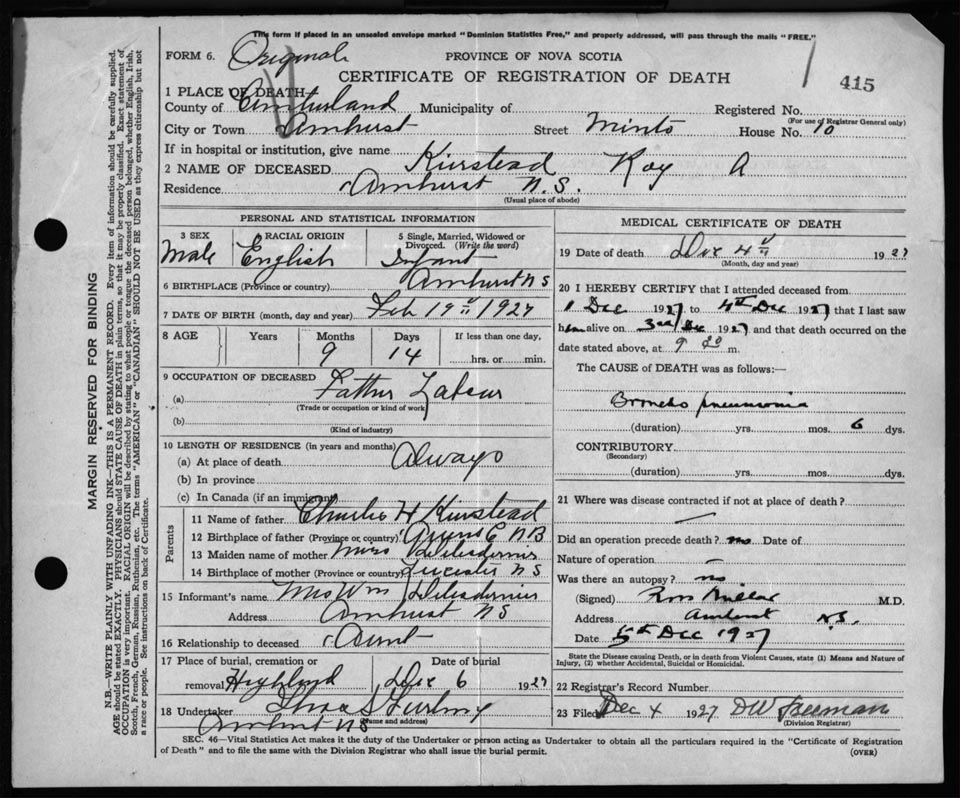 This form if placed in an unsealed envelope marked "Dominion Statistics Free," and properly addressed, will pass through the mails "FREE."
FORM 6. Original PROVINCE OF NOVA SCOTIA
CERTIFICATE OF REGISTRATION OF DEATH 415
1 PLACE OF DEATH
County of Cumberland Municipality of Registered No.
(For use of Registrar General only)
City or Town Amherst Street Minto House No. 10
If in hospital or institution, give name
2 NAME OF DECEASED Kierstead Roy A
Residence Amherst N.S.
(Usual place of abode)
PERSONAL AND STATISTICAL INFORMATION
3 SEX 4 RACIAL ORIGIN 5 Single, Married, Widowed or Divorced. (Write the word)
Male English Infant
6 BIRTHPLACE (Province or country) Amherst NS
7 DATE OF BIRTH (month, day and year) Feb 19 1927
8 AGE Years Months Days If less than one day,
9 14 hrs. or min.
9 OCCUPATION OF DECEASED
(a) Father Labour
(Trade or occupation or kind of work)
(b)
(Kind of industry)
10 LENGTH OF RESIDENCE (in years and months)
(a) At place of death Always
(b) In province
(c) In Canada (if an immigrant)
Parents
11 Name of father Charlie H Kierstead
12 Birthplace of father (Province or country) NB
13 Maiden name of mother Delesdernier
14 Birthplace of mother (Province or country) NS
15 Informant's name Mrs Wm Delesdernier
Address Amherst NS
16 Relationship to deceased Aunt
17 Place of burial, cremation or removal Highland Date of burial Dec 6 1927
18 Undertaker
Amherst NS (Name and address)
MEDICAL CERTIFICATE OF DEATH
19 Date of death Dec 4 1927
(Month, day and year)
20 I HEREBY CERTIFY that I attended deceased from
1 Dec 1927 to 4th Dec 1927 that I last saw
him alive on 3rd Dec 1927 and that death occurred on
date stated above, at 9 20 m.
The CAUSE of DEATH was as follows:—
Broncho pneumonia
(duration) yrs. mos. 6 dys.
CONTRIBUTORY
(Secondary)
(duration) yrs. mos. dys.
21 Where was disease contracted if not at place of death?
Did an operation precede death? no Date of
Nature of operation —
Was there an autopsy? no
(Signed) Ross Millar M.D.
Address Amherst N.S.
Date 5th Dec 1927
State the Disease causing Death, or in death from Violent Causes, state (1) Means and Nature of
Injury, (2) whether Accidental, Suicidal or Homicidal.
22 Registrar's Record Number
23 Filed Dec 1927 DW Freeman
(Division Registrar)
SEC. 46—Vital Statistics Act makes it the duty of the Undertaker or person acting as Undertaker to obtain all the particulars required in the "Certificate of Registration
of Death" and to file the same with the Division Registrar who shall issue the burial permit. (OVER)
MARGIN RESERVED FOR BINDING
N.B.—WRITE PLAINLY WITH UNFADING INK—THIS IS A PERMANENT RECORD. Every item of information should be carefully supplied.
AGE should be stated EXACTLY. PHYSICIANS should STATE CAUSE OF DEATH in plain terms, so that it may be properly classified. Exact statement of
OCCUPATION is very important. RACIAL ORIGIN will be described by stating to what people or tongue the deceased person belonged, whether English, Irish,
Scotch, French, German, Russian, Ruthenian, etc. The terms "AMERICAN" or "CANADIAN" SHOULD NOT BE USED as they express citizenship but not
a race or people. See instructions on back of Certificate.